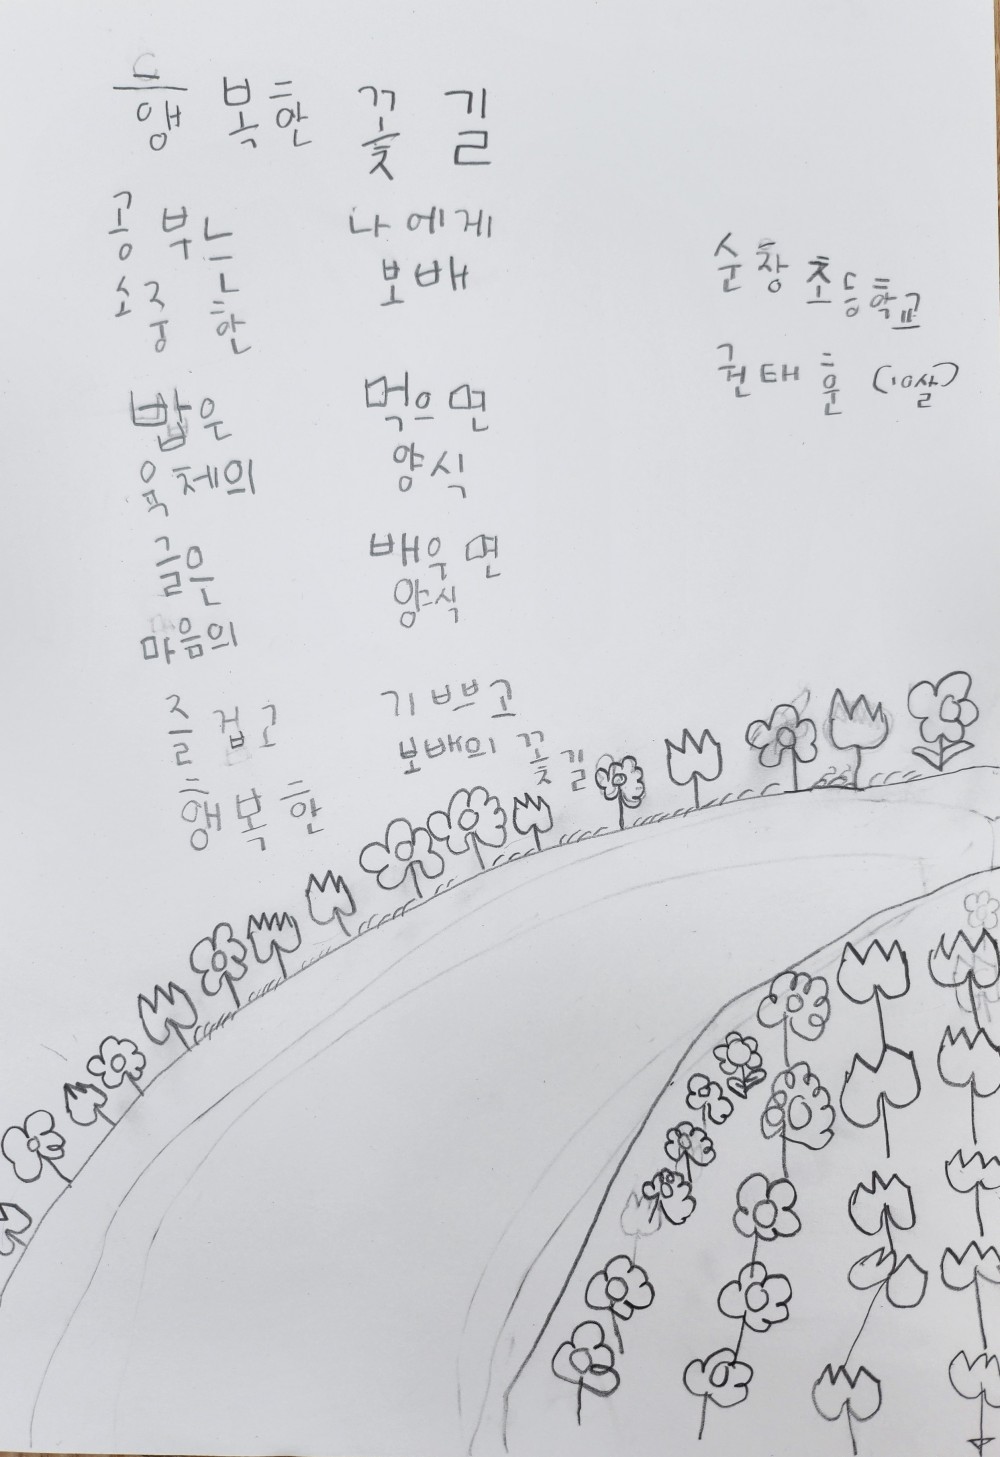 행복한 꽃길
공부는 나에게
소중한 보배
밥은 먹으면
육체의 양식
글은 배우면
마음의 양식
즐겁고 기쁘고
행복한 보배의 꽃길
순창초등학교
권태훈 (10살)